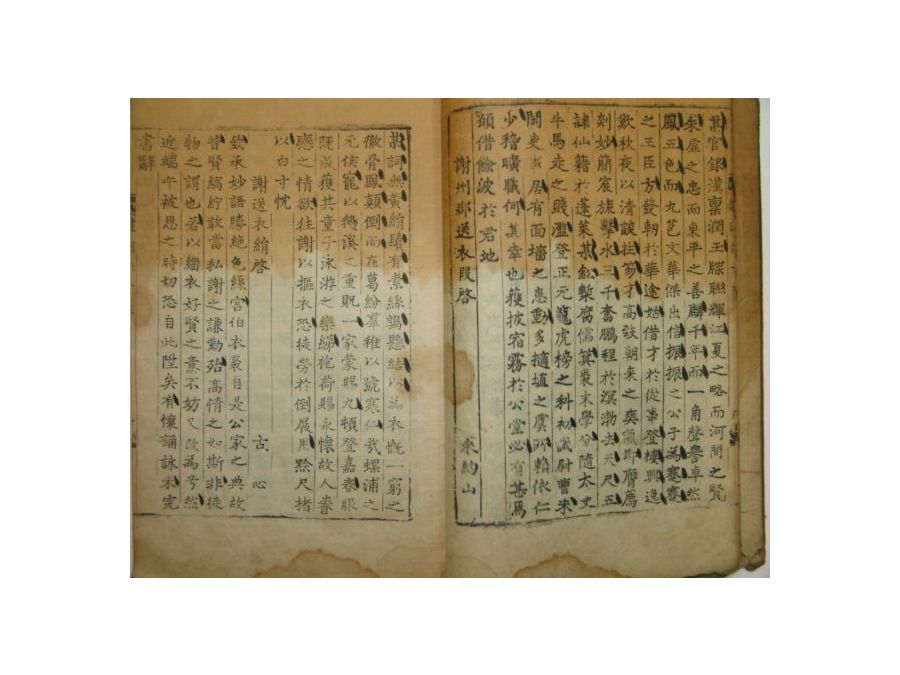 某官銀漢稟潤玉牒聯輝江夏之略而河間之賢
永虛之忠而東平之善麟千年而一角聲譽卓然
鳳五色而九苞文華傑出信振振之公子為蹇蹇
之王臣方發軔於華途姑借才於從事登樓興逸
歎秋夜以清談拄笏才高致朝來之爽氣即膺薦
剡妙簡宸旒擊水三千奮鵬程於溟渤去天尺五
隷仙籍於蓬萊某鈆槧腐儒箕裘末學分隨太史
牛馬走之賤濫登正元龍虎榜之科初試尉曹來
開吏 居有面墻之患動多擿埴之虞所賴依仁
少稽曠職何其幸也獲披宿霧於公堂必有甚焉
願借餘波於君地
謝州郡送衣段啓 朱約山
某詞無黃絹瑞有素絲鶉懸結以為衣慨一窮之
徹骨鳳顛倒而在葛紛羣稚以號寒仁我螺浦之
元侯寵以 溪之重貺一家蒙賜九頓登嘉春服
既成獲共童子泳游之樂綈袍荷賜永懷故人眷
戀之情欲往謝以摳衣恐徒勞於倒屐用黔尺楮
以白寸忱
謝送衣絹啓 古心
欽承妙語勝絕色絲宮伯衣裘自是公家之典故
昔賢縞紵敢當私謝之謙勤殆高情之如斯非徒
物之謂也若以緇衣好賢之意不妨又改為兮然
近端午被恩之時切恐自此陞矣有懷誦詠未究
書辭